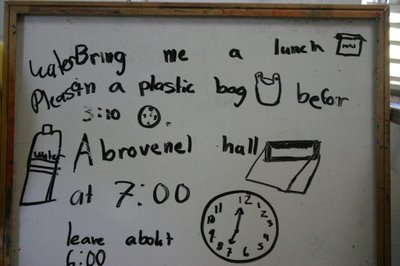 water Bring me a lunch
Please in a plastic bag befor
3:10
water
A brovenel hall
at 7:00
11 12 1 2 3 4 5 6 7 8 9 10
leave about
6:00